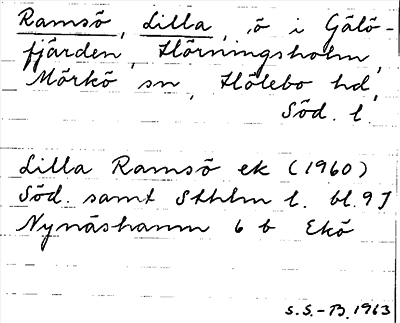 Ramsö, Lilla, ö i Gälö-
fjärden, Hörningsholm,
Mörkö sn, Hölebo hd,
Söd. l.
Lilla Ramsö ek (1960)
Söd. samt Sthlm l. bl. 9J
Nynäshamn 6 b Ekö
S.S.-B. 1963